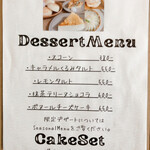 DessertMenu
・スコーン
・キャラメルくるみタルト 550-
・レモンタルト 550-
・抹茶テリーヌショコラ 660-
・バスクチーズケーキ 660-
限定デザートについては
SeasonalMenuをご覧ください
CakeSet